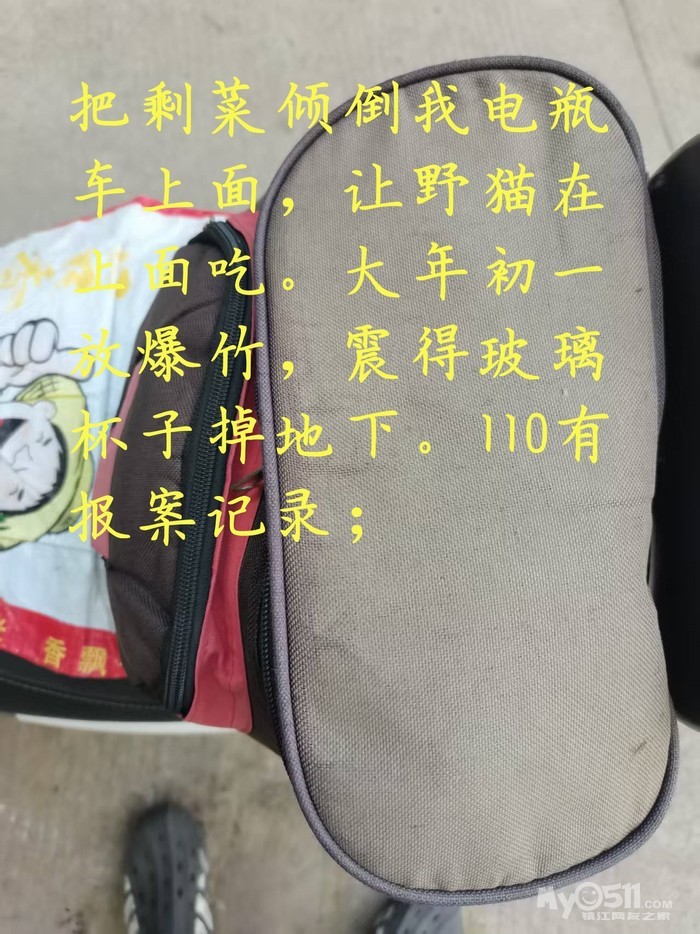 把剩菜倾倒我电瓶
车上面，让野猫在
上面吃。大年初一
放爆竹，震得玻璃
杯子掉地下。110有
报案记录；
香飘
My0511.COM
镇江网友之家